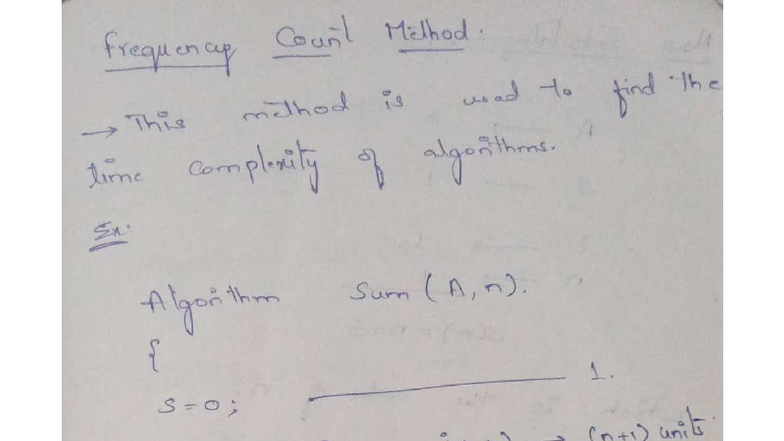 Frequency Count Method.
→ This method is used to find the
time complexity of algorithms.
Ex:
Algorithm Sum (A, n).
{
S = 0; 1.
→ (n+1) units